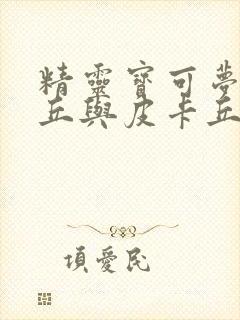 精靈寶可夢
丘與皮卡丘
項愛民